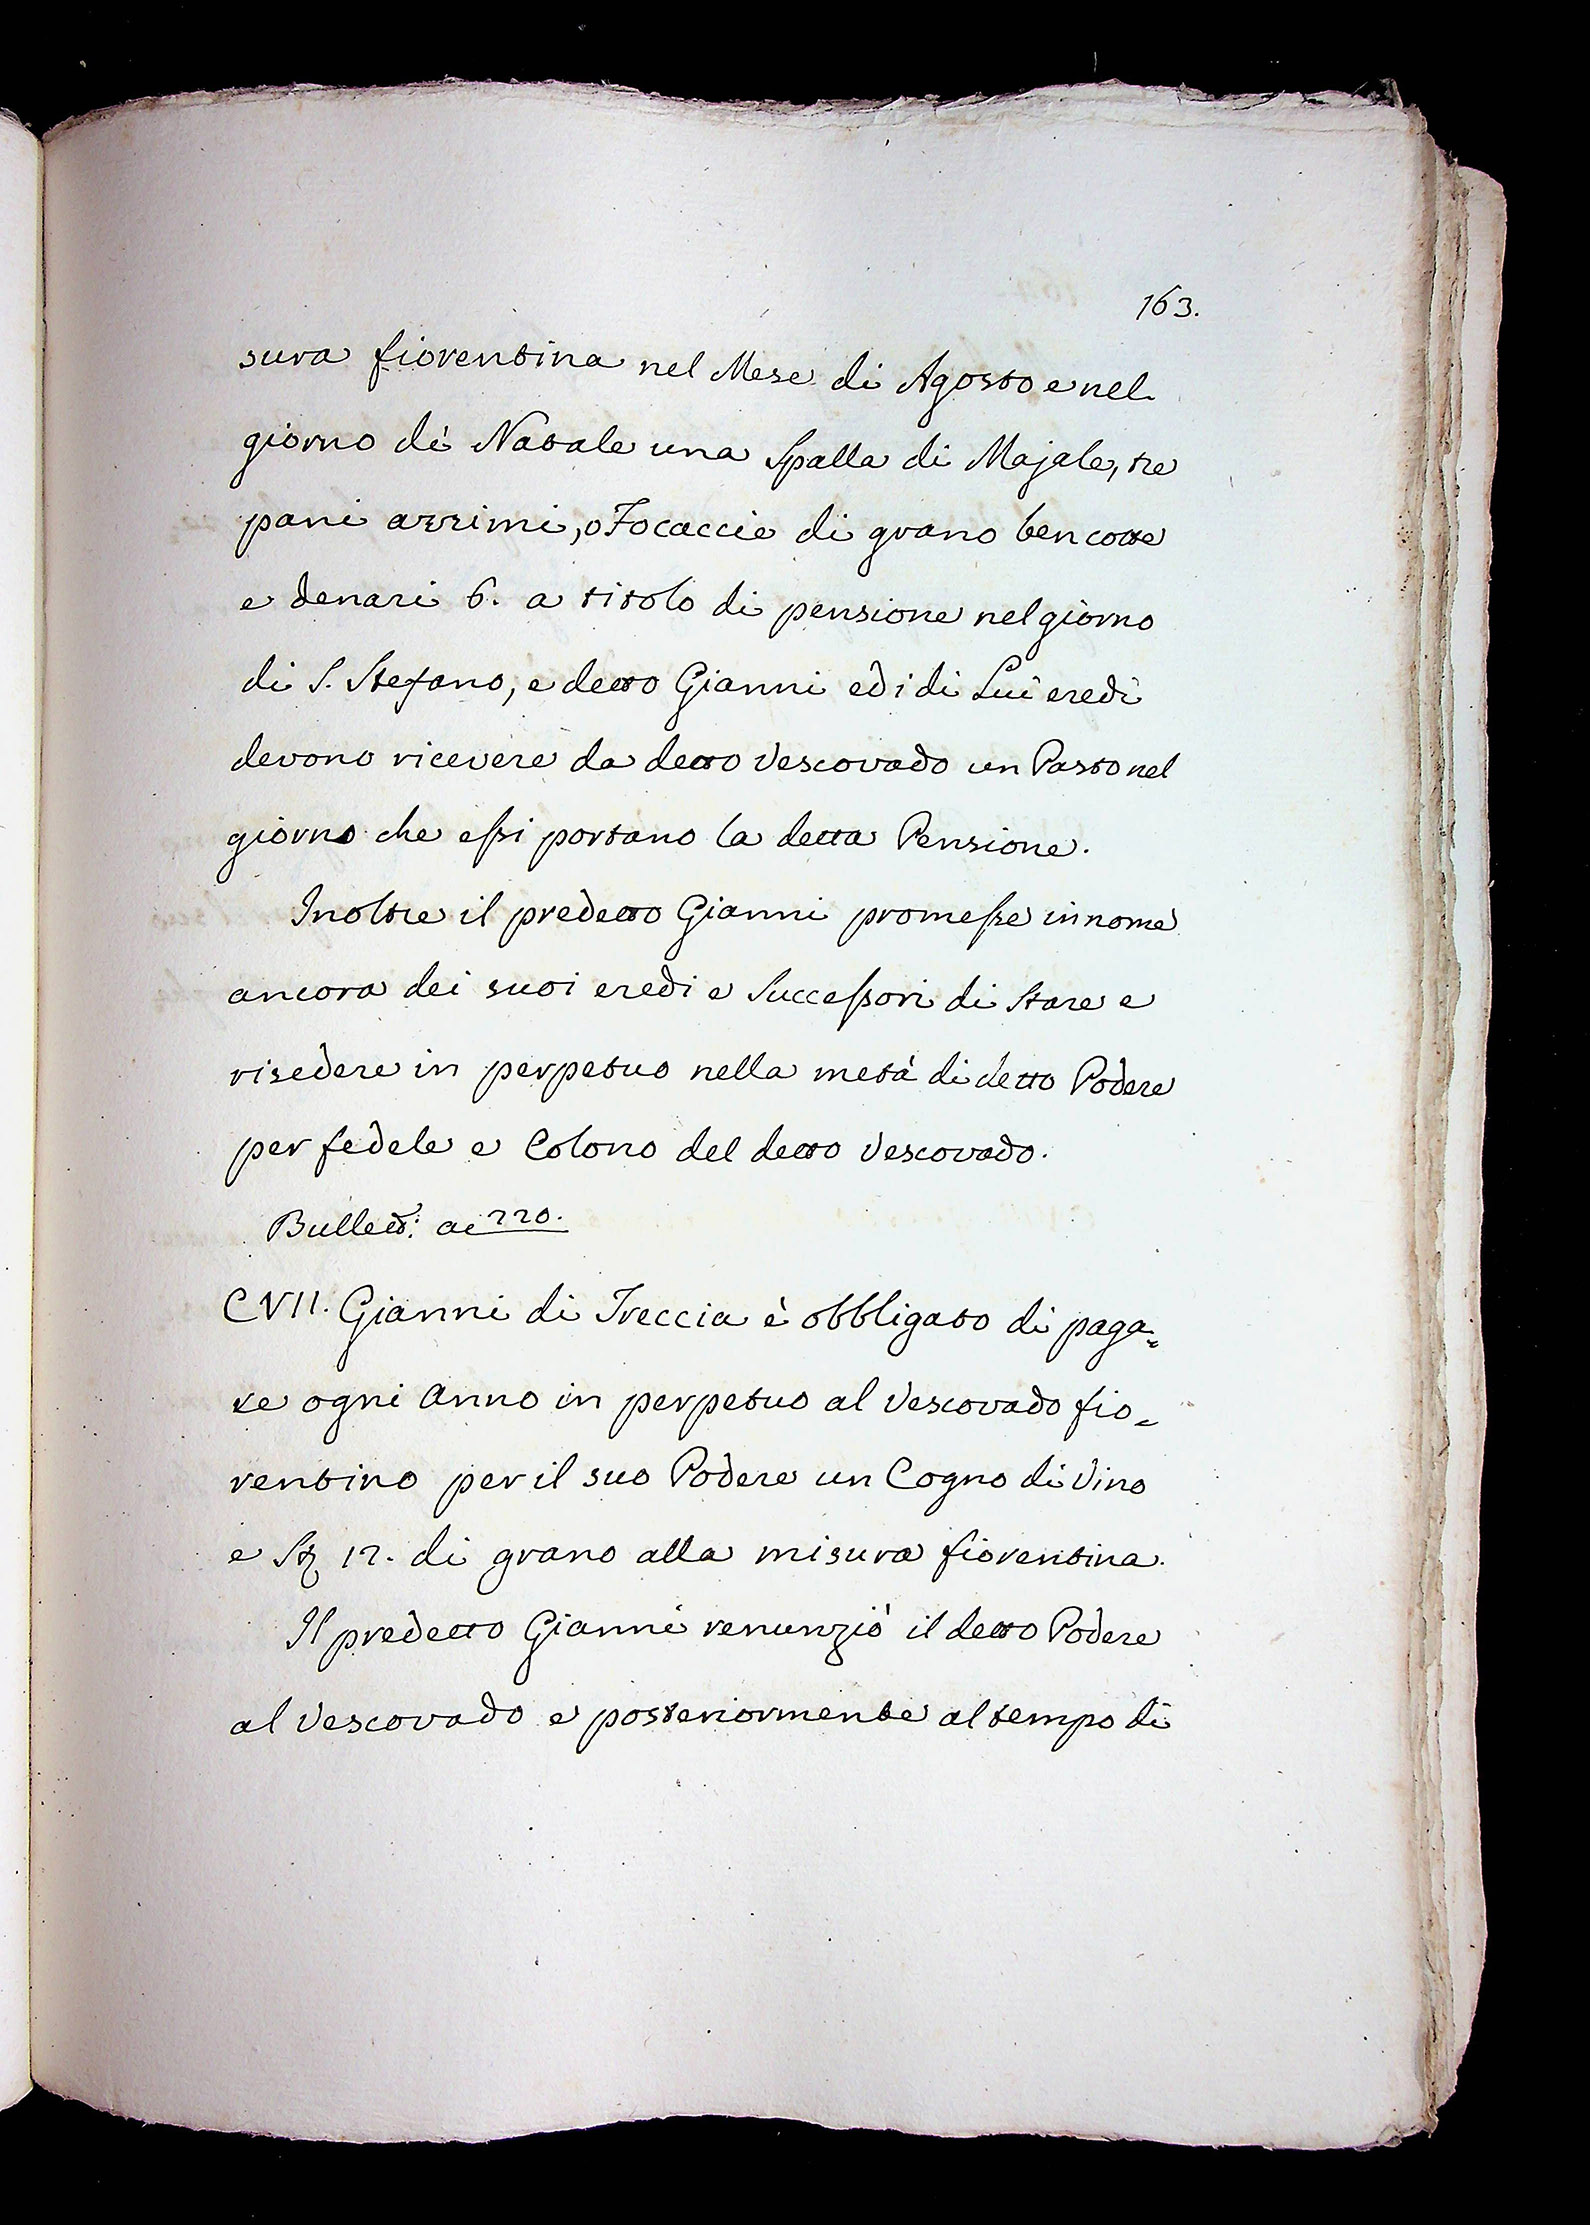 163.
sura fiorentina nel Mese di Agosto e nel
giorno di Natale una Spalla di Majale, tre
pani azzimi, o Focaccie di grano ben cotte
e denari 6. a titolo di pensione nel giorno
di S. Stefano, e detto Gianni ed i di Lui eredi
devono ricevere da detto Vescovado un Pasto nel
giorno che essi portano la detta Pensione.
Inoltre il predetto Gianni promesse in nome
ancora dei suoi eredi e Successori di Stare e
risedere in perpetuo nella metà di detto Podere
per fedele e Colono del detto Vescovado.
Bullett: ac 220.
CVII. Gianni di Treccia è obbligato di paga=
re ogni Anno in perpetuo al Vescovado fio=
rentino per il suo Podere un Cogno di Vino
e St 12. di grano alla misura fiorentina.
Il predetto Gianni renunziò il detto Podere
al Vescovado e posteriormente al tempo di